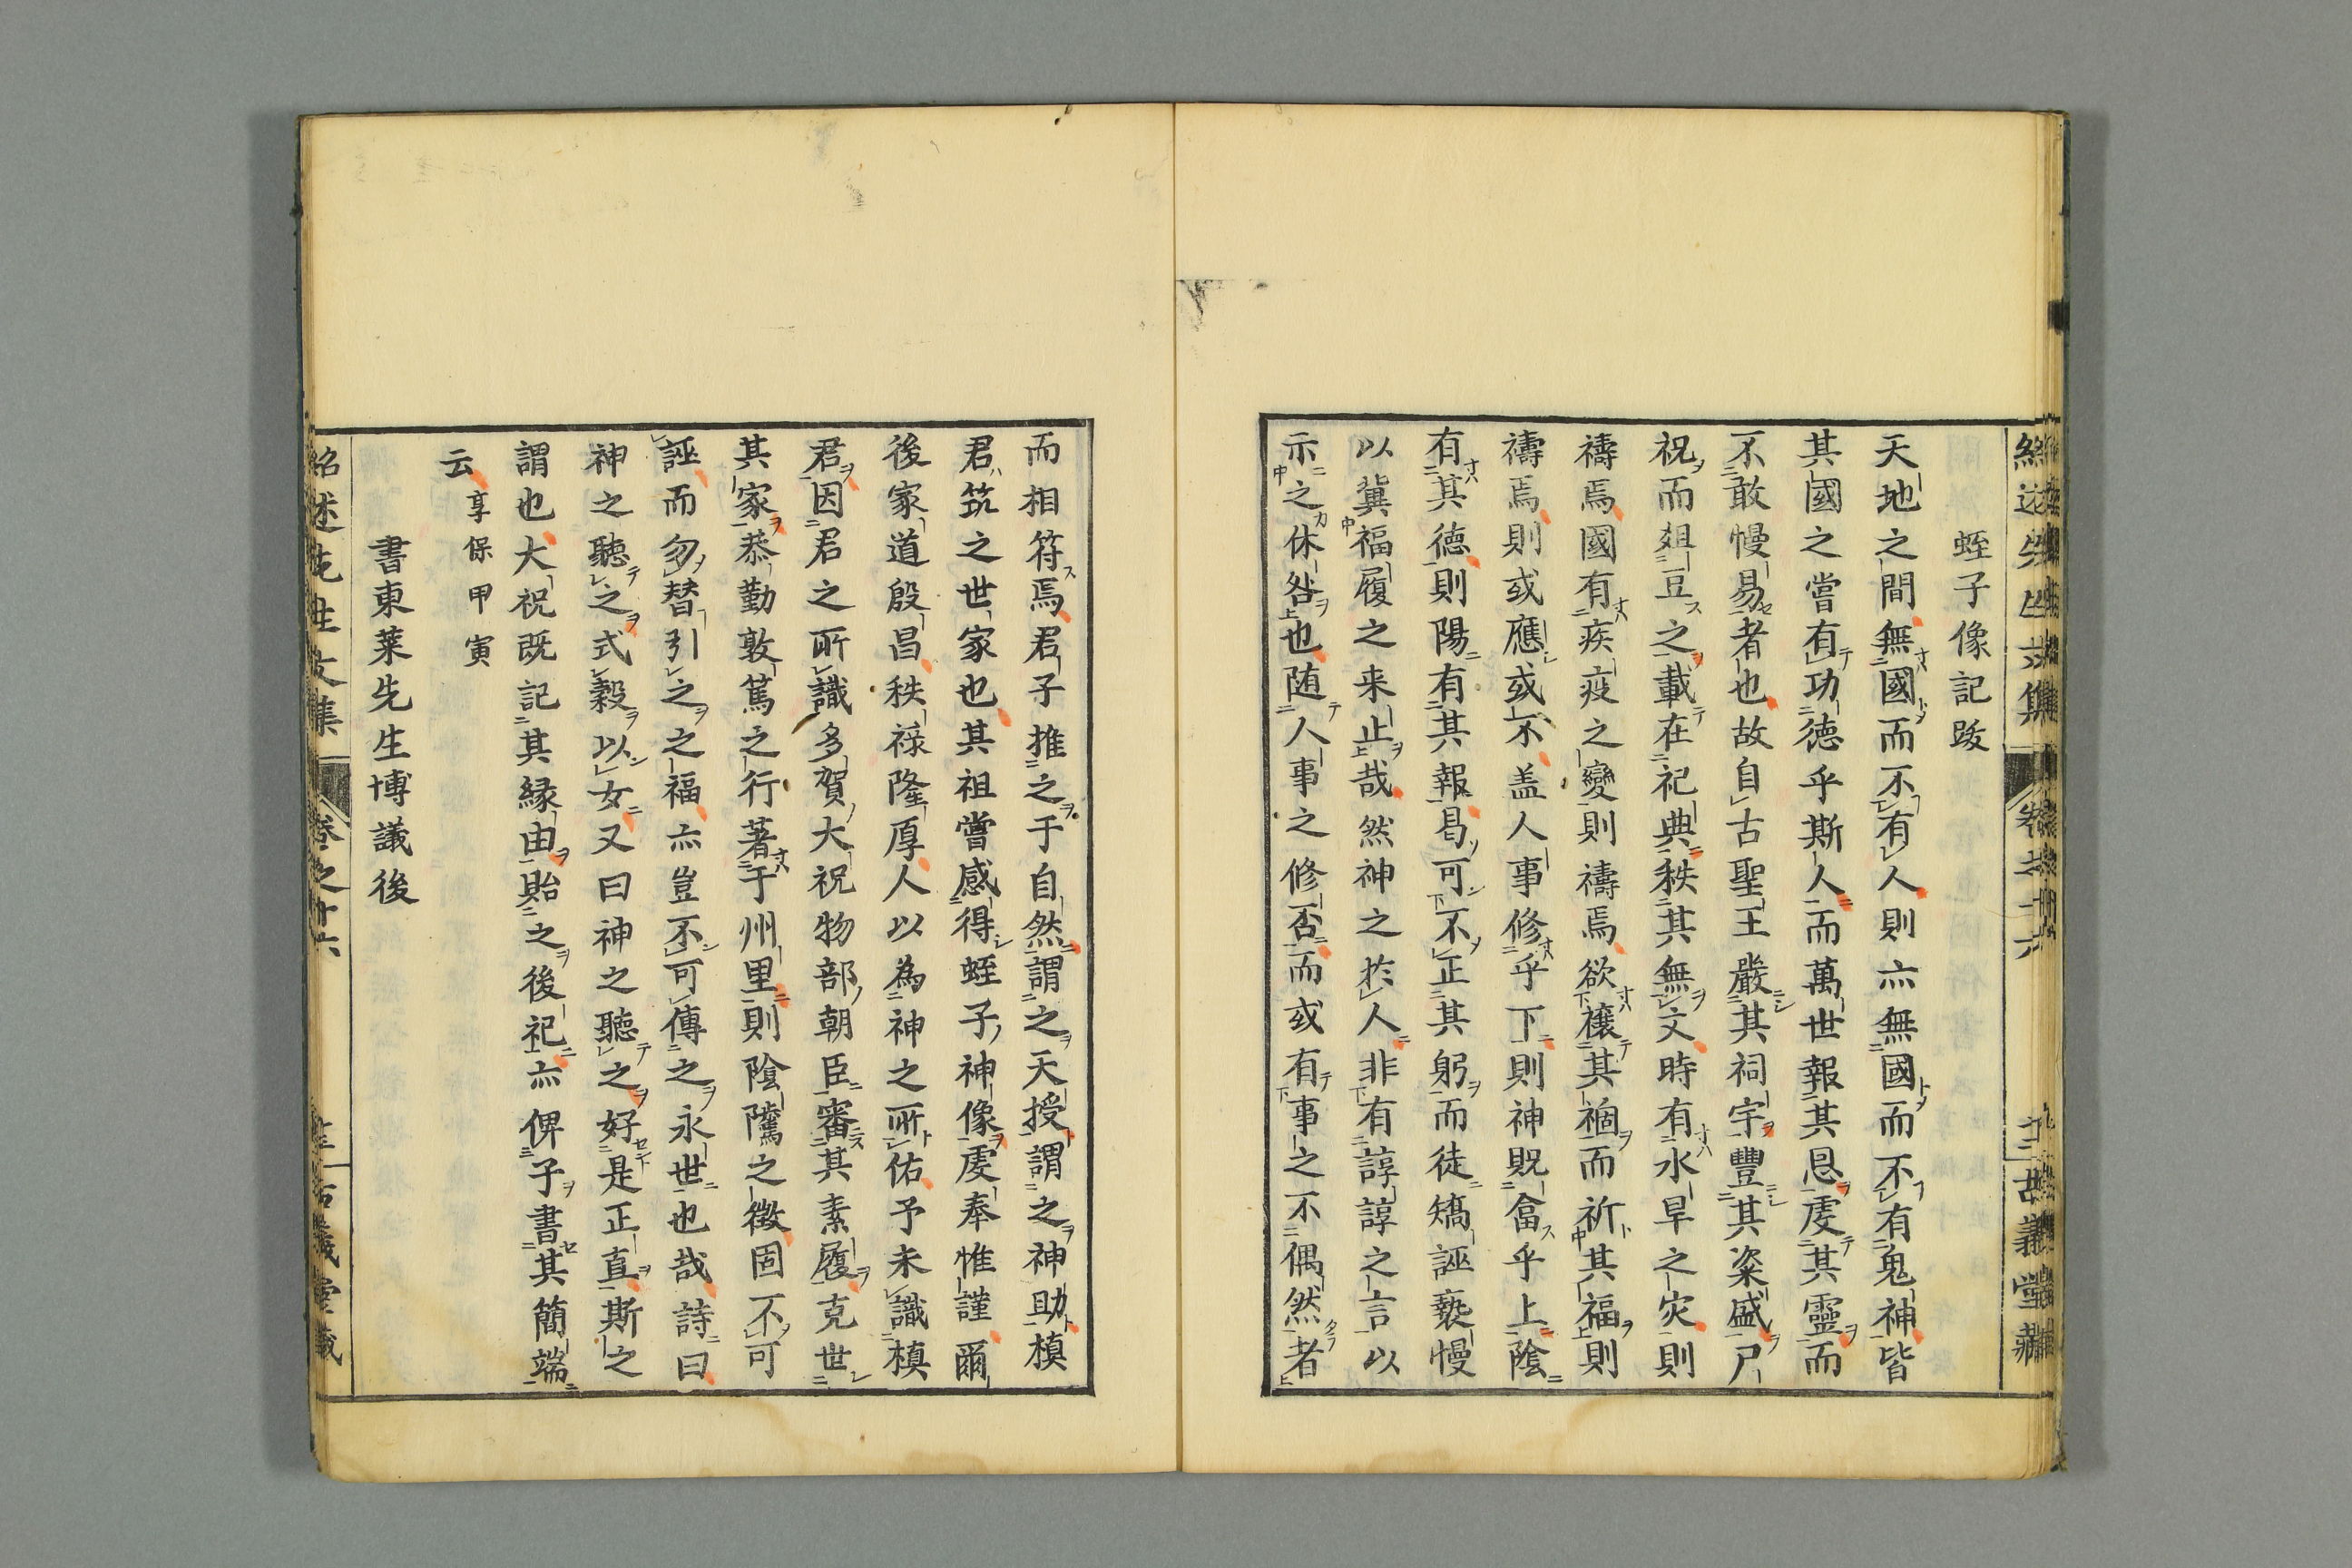 蛭子像記跋
天地之間無國而不有人則亦無國而不有鬼神皆
其國之嘗有功德乎斯人而萬世報其恩虔其靈而
不敢慢易者也故自古聖王嚴其祠宇豐其粢盛尸
祝而俎豆之載在祀典秩其無文時有水旱之灾則
禱焉國有疾疫之變則禱焉欲禳其禍而祈其福則
禱焉則或應或不盖人事修乎下則神貺畣乎上陰
有其德則陽有其報曷可不正其躬而徒矯誣褻慢
以冀福履之来止哉然神之於人非有諄諄之言以
示之休咎也随人事之修否而或有事之不偶然者
而相符焉君子推之于自然謂之天授謂之神助槙
君筑之世家也其祖嘗感得蛭子神像虔奉惟謹爾
後家道殷昌秩祿隆厚人以為神之所佑予未識槙
君因君之所識多賀大祝物部朝臣審其素履克世
其家恭勤敦篤之行著于州里則陰隲之徵固不可
誣而勿替引之之福亦豈不可傳之永世也哉詩曰
神之聽之式穀以女又曰神之聽之好是正直斯之
謂也大祝既記其縁由貽之後祀亦俾子書其簡端
云享保甲寅
書東萊先生博議後
紹述先生文集 卷之十六 古義堂藏